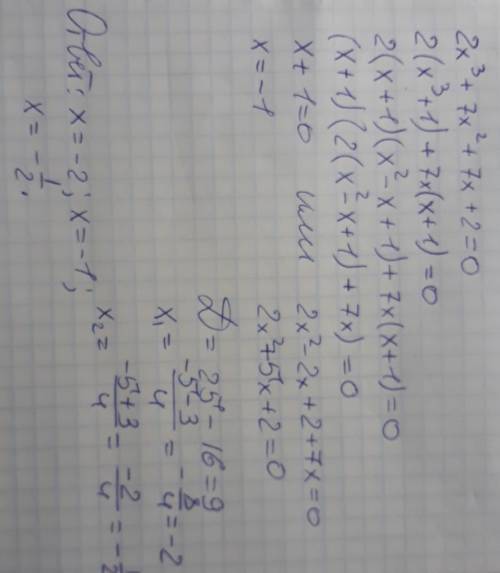 2x³ + 7x² + 7x + 2 = 0
2(x³+1) + 7x(x+1) = 0
2(x+1)(x² - x + 1) + 7x(x+1) = 0
(x+1)(2(x² - x + 1) + 7x) = 0
x + 1 = 0 или 2x² - 2x + 2 + 7x = 0
x = -1 2x² + 5x + 2 = 0
D = 25 - 16 = 9
x₁ = (-5-3)/4 = -8/4 = -2
x₂ = (-5+3)/4 = -2/4 = -1/2
Ответ: x = -2; x = -1;
x = -1/2;